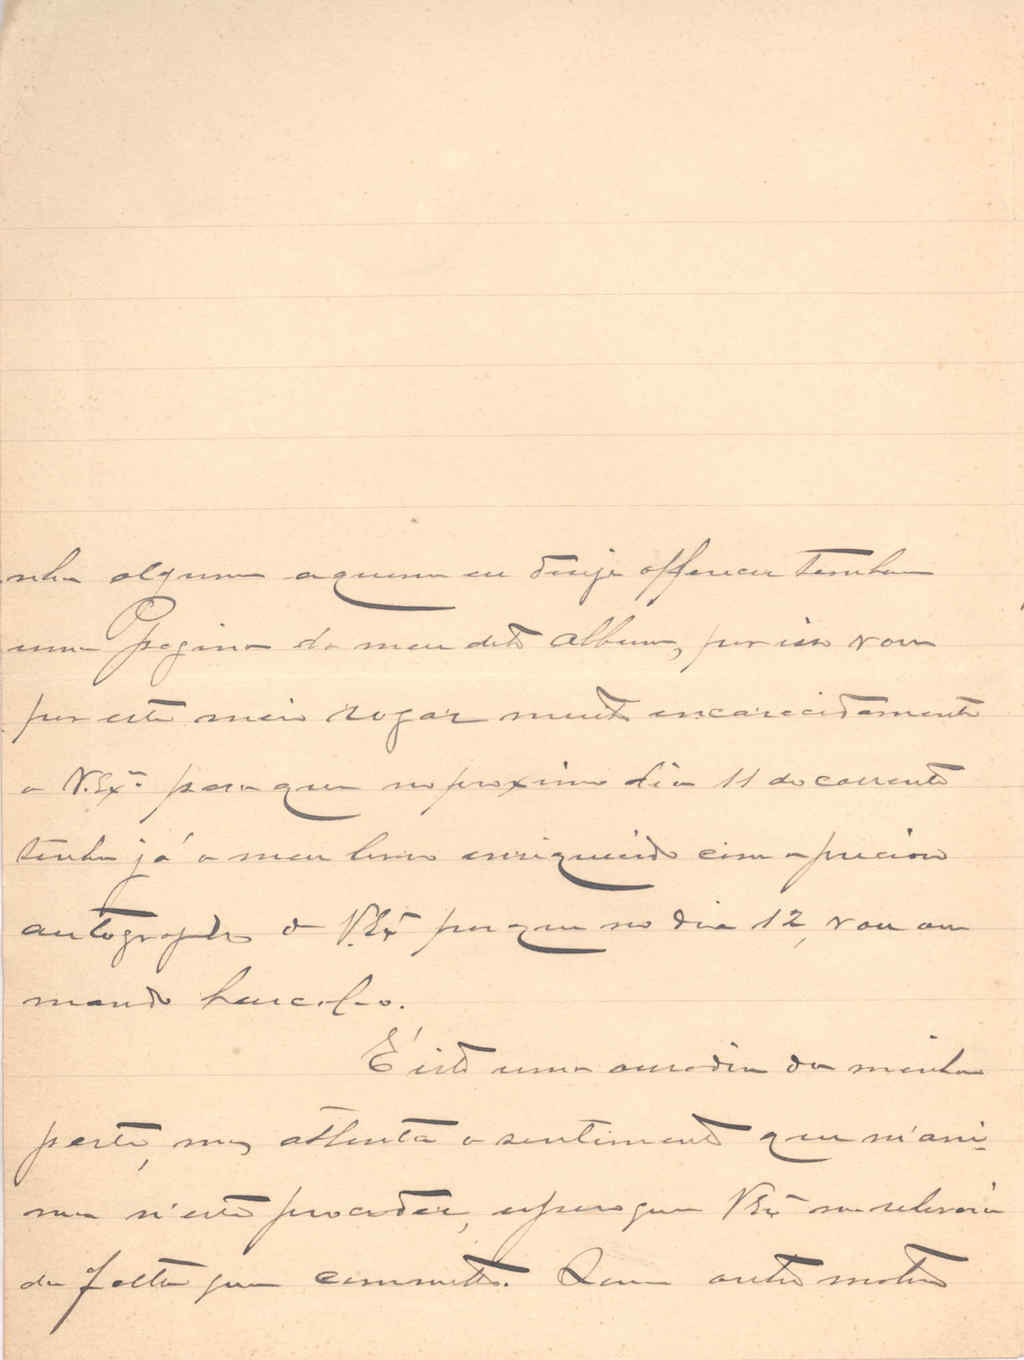 nha alguma a quem eu dirijo offerecer tambem
uma Pagina do meu dito Album, por isso vou
por este meio rogar muito encarecidamente
a V.Exª para que no proximo dia 11 do corrente
tenha já o meu livro enriquecido com o precioso
autographo de V.Exª porque no dia 12, vou ou
mando buscal-o.
É isto uma ousadia da minha
parte, mas attenta o sentimento que m'ani-
ma n'este proceder, espero que V.Exª me relevará
da falta que commetto. Sem outro motivo